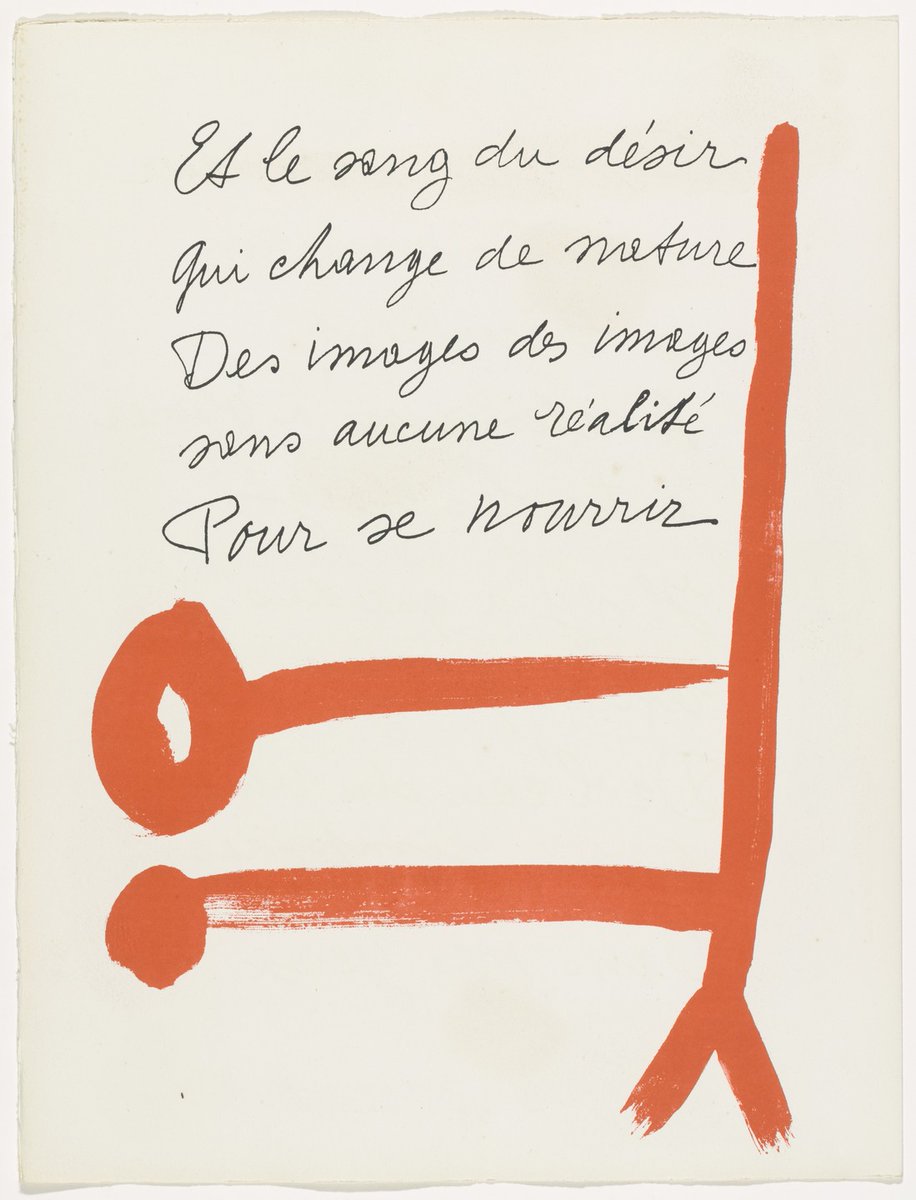 Et le sang du désir
qui change de nature
Des images des images
sans aucune réalité
Pour se nourrir